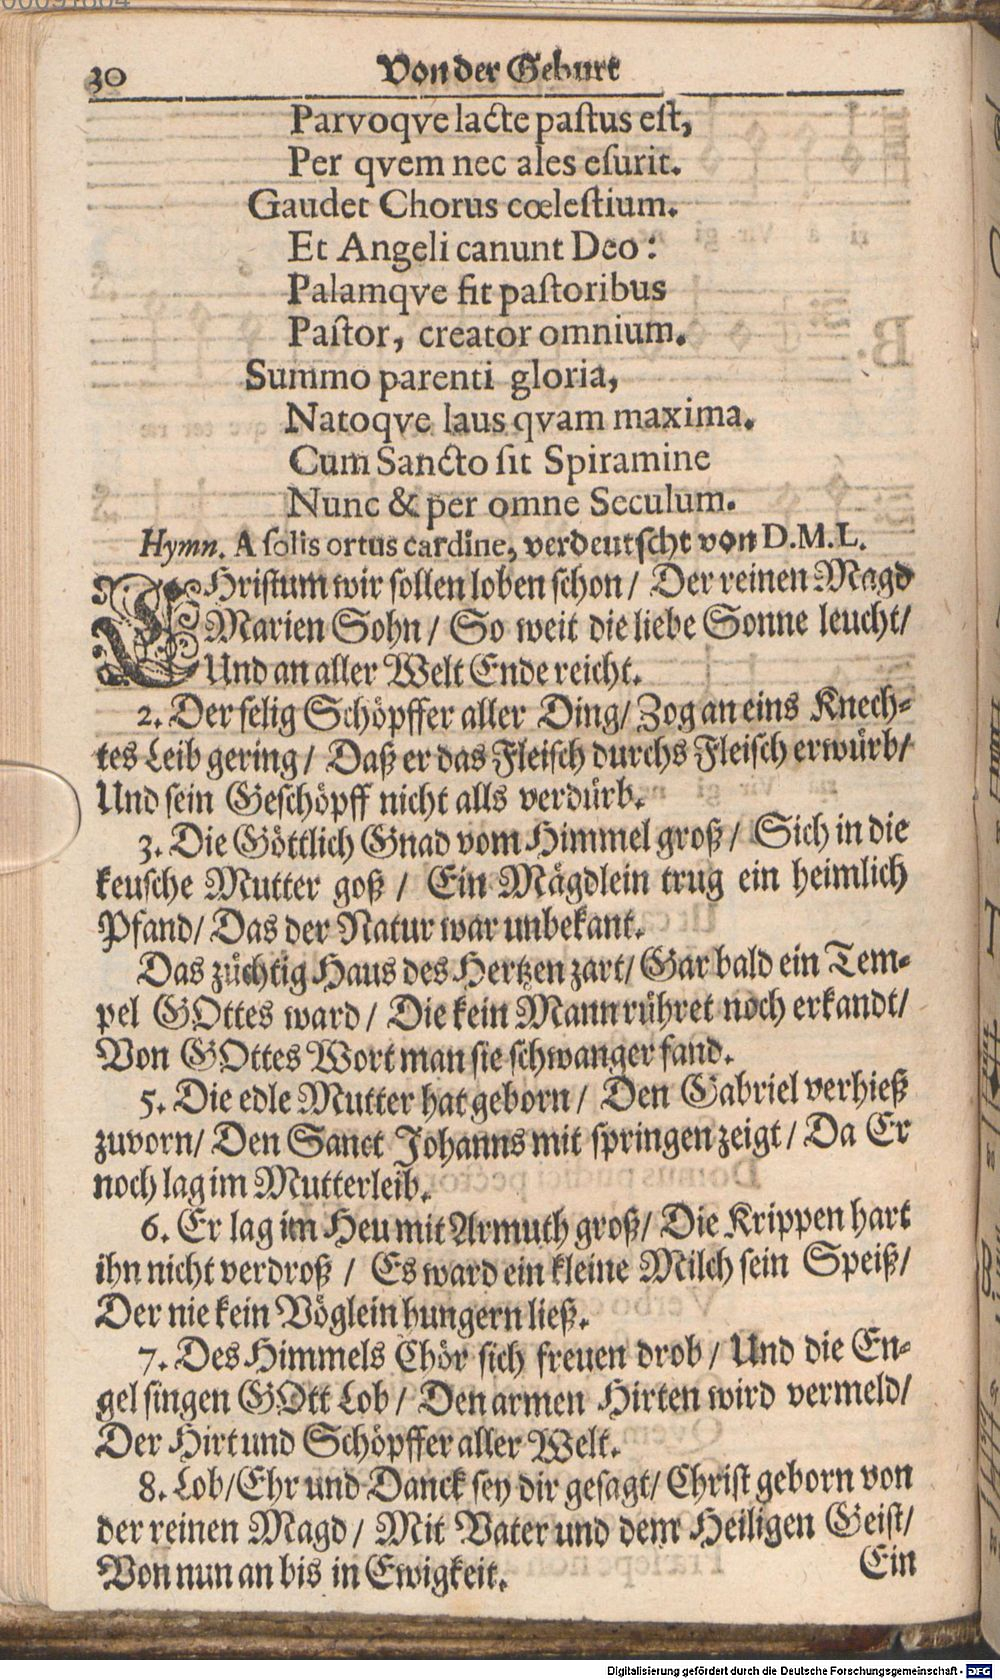 30 Von der Geburt
Parvoqve lacte pastus est,
Per qvem nec ales esurit.
Gaudet Chorus cœlestium.
Et Angeli canunt Deo:
Palamqve fit pastoribus
Pastor, creator omnium.
Summo parenti gloria,
Natoqve laus qvam maxima.
Cum Sancto sit Spiramine
Nunc & per omne Seculum.
Hymn. A solis ortus cardine, verdeutscht von D.M.L.
CHristum wir sollen loben schon / Der reinen Magd
Marien Sohn / So weit die liebe Sonne leucht/
Und an aller Welt Ende reicht.
2. Der selig Schöpffer aller Ding/ Zog an eins Knech-
tes Leib gering / Daß er das Fleisch durchs Fleisch erwürb/
Und sein Geschöpff nicht alls verdürb.
3. Die Göttlich Gnad vom Himmel groß / Sich in die
keusche Mutter goß / Ein Mägdlein trug ein heimlich
Pfand/ Das der Natur war unbekant.
Das züchtig Haus des Hertzen zart/ Gar bald ein Tem-
pel GOttes ward / Die kein Mann rühret noch erkandt/
Von GOttes Wort man sie schwanger fand.
5. Die edle Mutter hat geborn / Den Gabriel verhieß
zuvorn/ Den Sanct Johanns mit springen zeigt / Da Er
noch lag im Mutterleib.
6. Er lag im Heu mit Armuth groß/ Die Krippen hart
ihn nicht verdroß / Es ward ein kleine Milch sein Speiß/
Der nie kein Vöglein hungern ließ.
7. Des Himmels Chör sich freuen drob / Und die En-
gel singen GOtt Lob / Den armen Hirten wird vermeld/
Der Hirt und Schöpffer aller Welt.
8. Lob/Ehr und Danck sey dir gesagt/ Christ geborn von
der reinen Magd / Mit Vater und dem Heiligen Geist/
Von nun an bis in Ewigkeit.
Ein
Digitalisierung gefördert durch die Deutsche Forschungsgemeinschaft - DFG